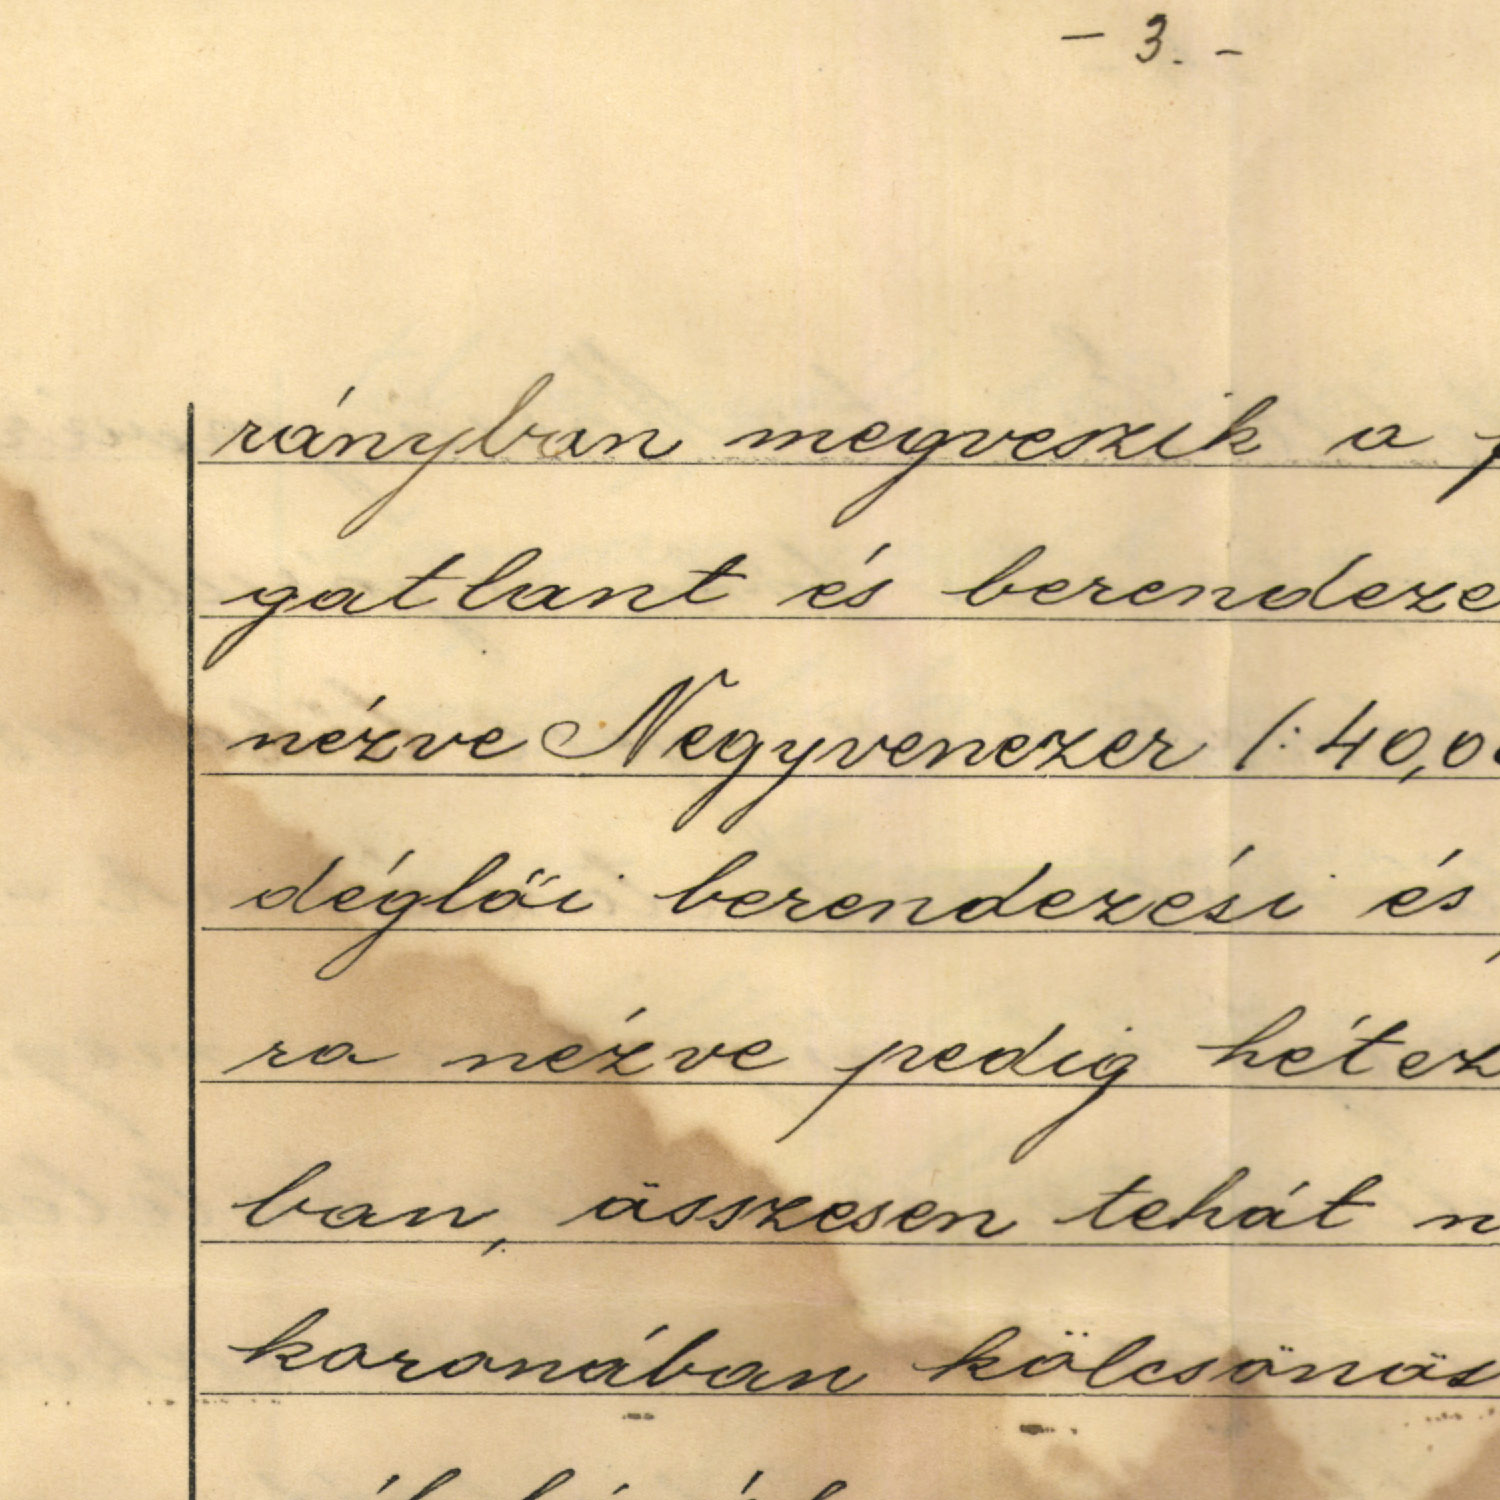 - 3. -
rányban megveszik a
gatlant és berendeze
nézve Negyvenezer /: 40,0
déglői berendezési és
ra nézve pedig hétez
ban, összesen tehát n
koronában kölcsönös